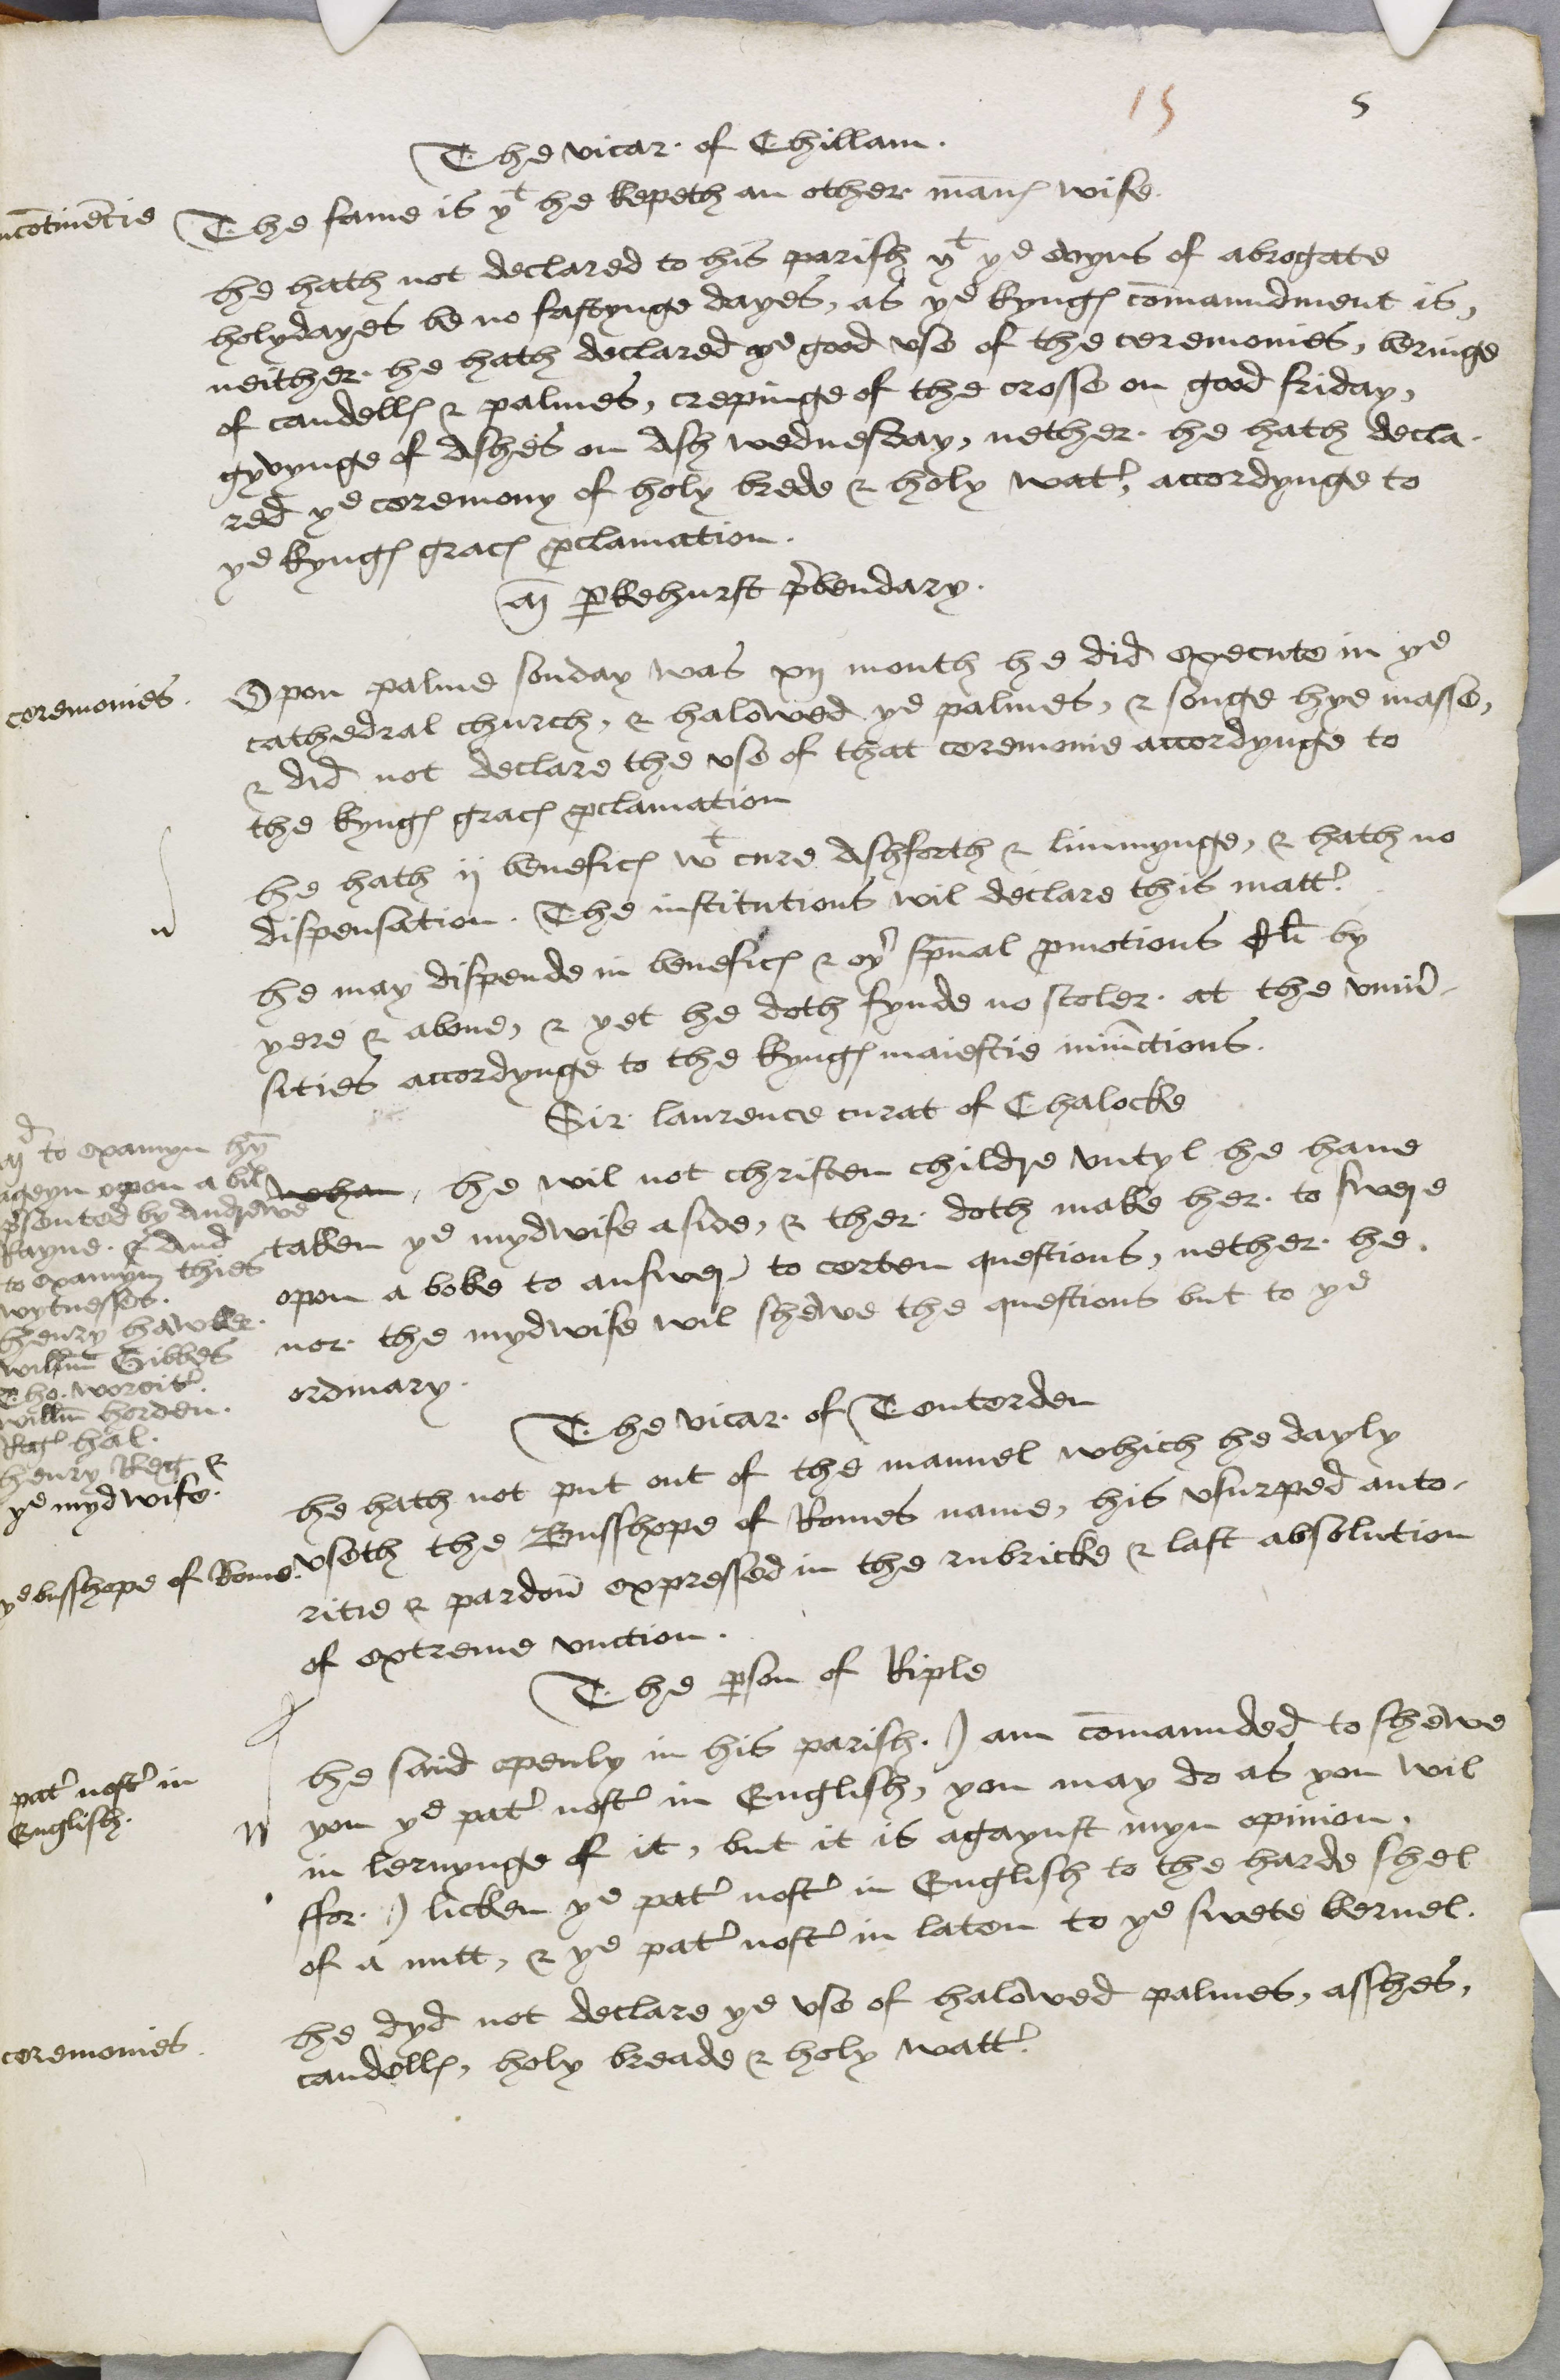 15 5
The vicar of Chillam.
incōtinēcie
The fame is yt he kepeth an other mans wife.
he hath not declared to his parish yt ye evyns of abrogate
holydayes be no fastynge dayes, as ye kynges cōmaundment is,
neither he hath declared ye good vse of the ceremonies, beringe
of candells & palmes, crepinge of the crosse on good friday,
gyvynge of Ashes on Ash wednesday, nether he hath decla
red ye ceremony of holy brede & holy wat', accordynge to
ye kynges graces pclamation.
M pkehurst p'bendary.
ceremonies.
Opon palme sonday was xij month he did execute in ye
cathedral church, & halowed ye palmes, & songe hye masse,
& did not declare the vse of that ceremonie accordynge to
the kynges graces pclamation
he hath ij benefices wt cure Ashforth & limmynge, & hath no
dispensation. The institutions wil declare this matt'.
he may dispende in benefices & oy' sp̄ual pmotions by
yere & aboue, & yet he doth fynde no scoler at the vniu'
sities accordynge to the kynges maiestie iniūctions.
Sir laurence curat of Chalocke
md to examyn hȳ
ageyn vpon a bil
p'sented by Andrewe
kayne. And
to examyn thies
wytnesses.
henry hawker.
willm Gibbes
Tho.
willm horden.
hal.
henry &
ye mydwife.
he wil not christen childre vntyl he haue
taken ye mydwife aside, & ther doth make her to swere
opon a boke to answer to certen questions, nether he
nor the mydwife wil shewe the questions but to ye
ordinary.
The vicar of Tenterden
ye busshope of Rome.
he hath not put out of the manuel which he dayly
vseth the Busshope of Romes name, his vsurped auto
ritie & pardoū expressed in the rubricke & last absolution
of extreme vnction.
The pson of Riple
pat' nost' in
Englissh.
he said openly in his parish. I am cōmaunded to shewe
you ye pat' nost' in Englissh, you may do as you wil
in lernynge of it, but it is agaynst myn opinion.
ffor I licken ye pat' nost' in Englissh to the harde shel
of a nutt, & ye pat' nost' in laten to ye swete kernel.
ceremonies.
he dyd not declare ye vse of halowed palmes, asshes,
candells, holy breade & holy watt'.